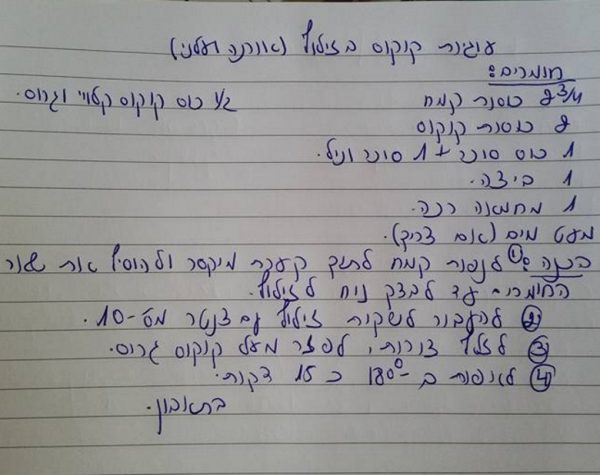 עוגיות קוקוס בזילוף (אוותה ועלני)
חומרים:
2 3/4 כוסות קמח
1/2 כוס קוקוס קלוי וגרוס.
2 כוסות קוקוס
1 כוס סוכר + 1 סוכר וניל.
1 ביצה.
1 מחמאה רכה.
מעט מים (אם צריך).
הכנה: ① לנפות קמח לתוך קערת מיקסר ולהוסיף את שאר
החומרים עד לבצק נוח לזילוף.
② להעבור לשקית זילוף עם צנטר מס-10.
③ לזלף צורות, לפזר מעל קוקוס גרוס.
④ לאפות ב-180° כ 15 דקות.
בתאבון.